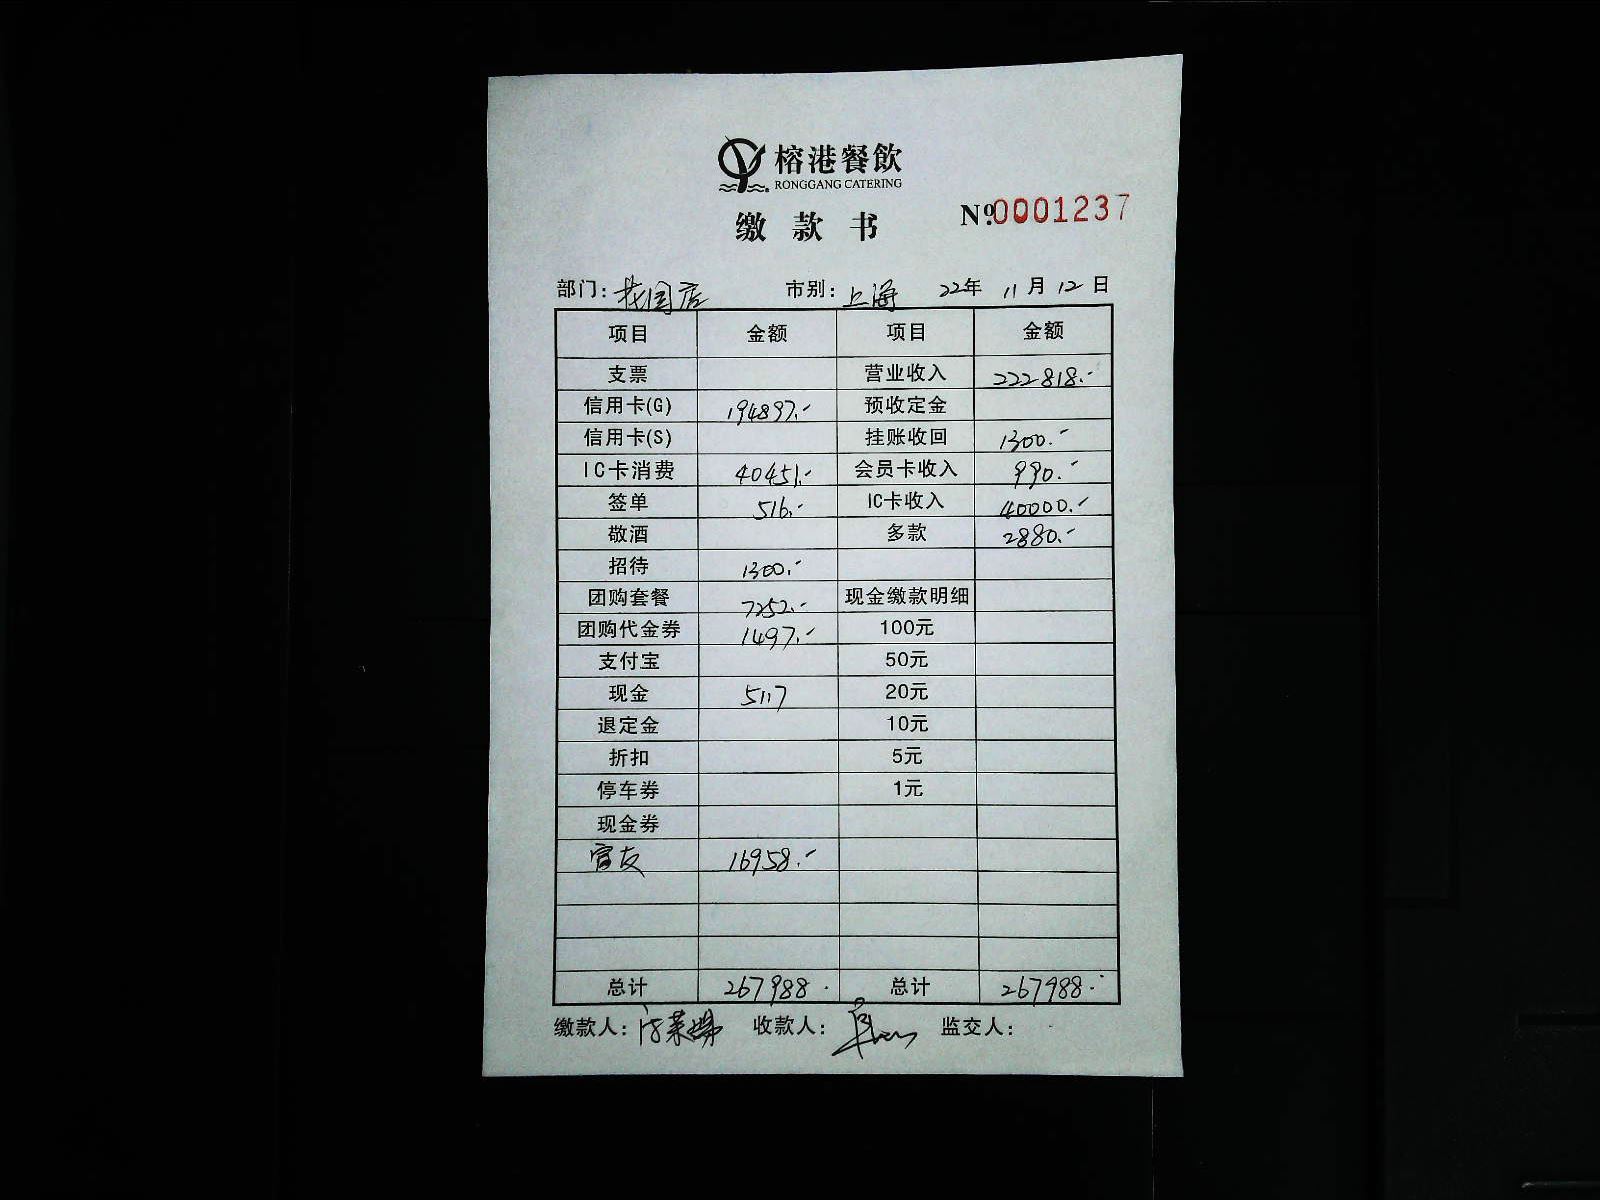 榕港餐飲
RONGGANG CATERING
缴款书 №0001237
部门：花园店 市别：上海 22年 11月12日
项目 金额 项目 金额
支票 营业收入 222818.-
信用卡(G) 194897.- 预收定金
信用卡(S) 挂账收回 1300.-
IC卡消费 40451.- 会员卡收入 990.-
签单 516.- IC卡收入 40000.-
敬酒 多款 2880.-
招待 1300.-
团购套餐 7252.- 现金缴款明细
团购代金券 1497.- 100元
支付宝 50元
现金 5117 20元
退定金 10元
折扣 5元
停车券 1元
现金券
16958.-
总计 267988. 总计 267988.-
缴款人： 收款人： 监交人：